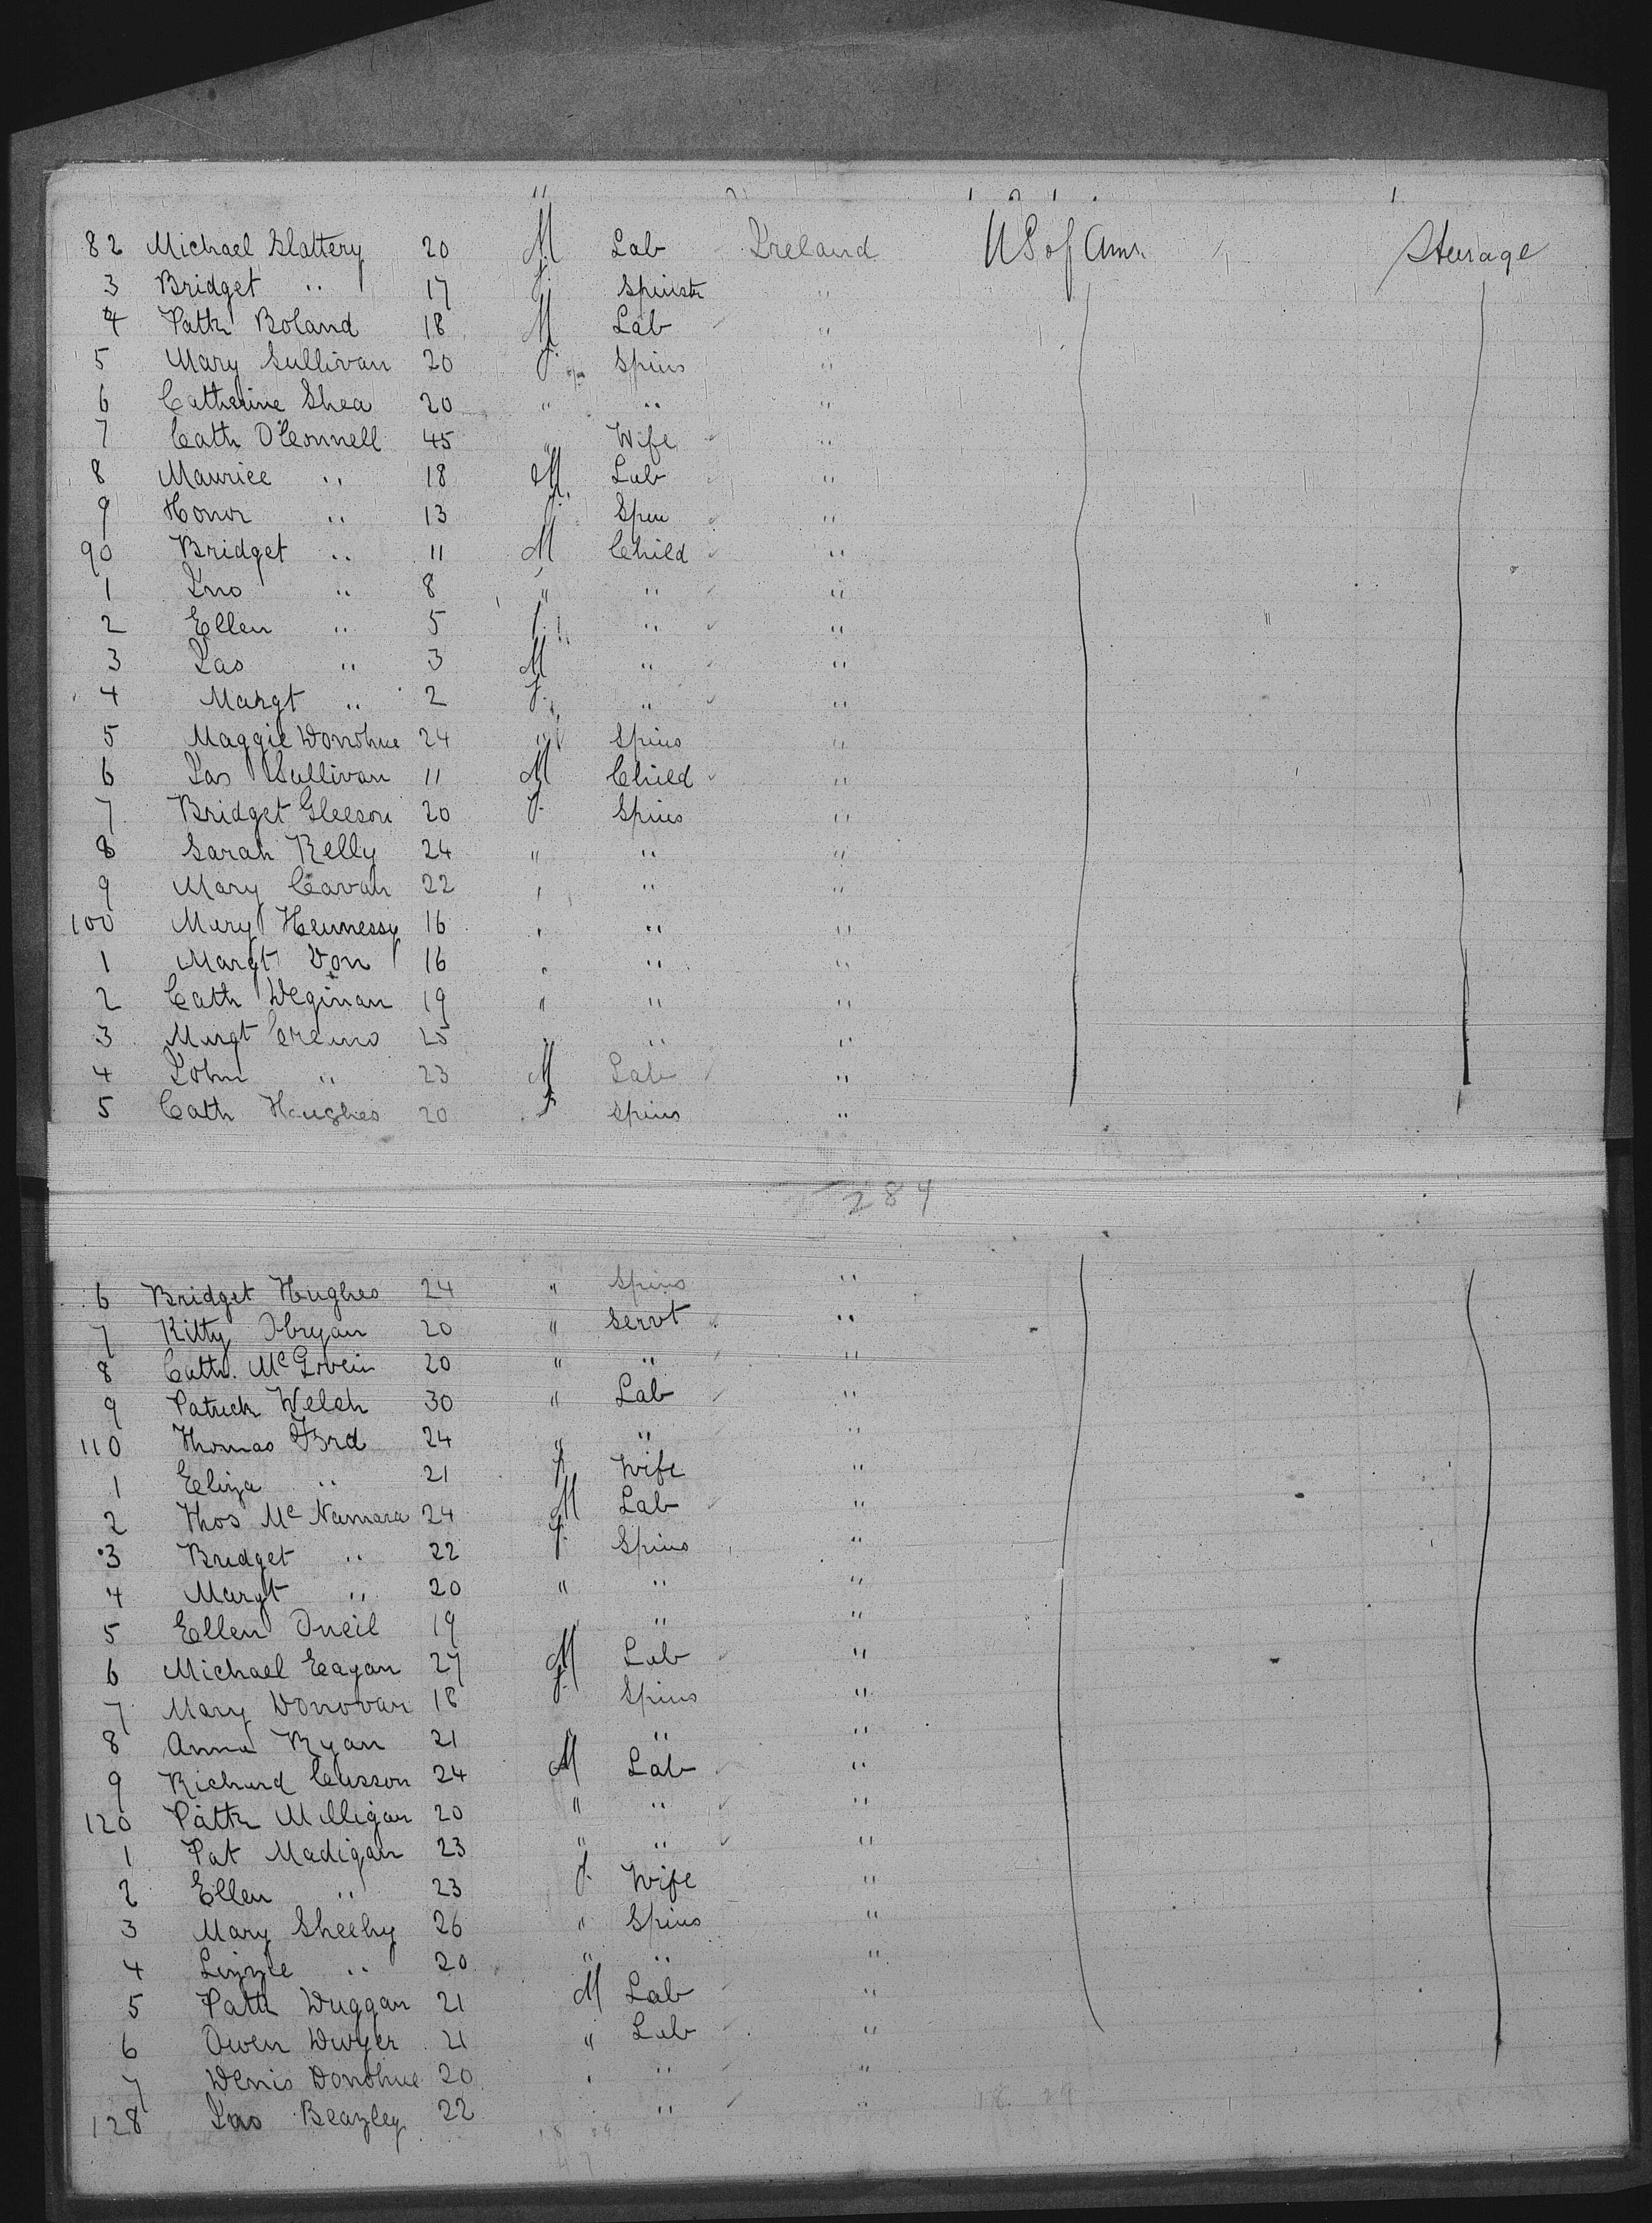 82 Michael Slattery 20 M Lab Ireland US of Amr. Steerage
3 Bridget " 17 f. Spinstr "
4 Patk Boland 18 M Lab "
5 Mary Sullivan 20 f. Spins "
6 Catherine Shea 20 " " "
7 Cath O'Connell 45 " Wife "
8 Maurice " 18 M Lab "
9 Honor " 13 f. Spin "
90 Bridget " 11 M Child "
1 Jno " 8 " " "
2 Ellen " 5 f. " "
3 Jas " 3 M " "
4 Margt " 2 f. " "
5 Maggie Donohue 24 " Spins "
6 Jas Sullivan 11 M Child "
7 Bridget Gleeson 20 f. Spins "
8 Sarah Kelly 24 " " "
9 Mary Cavah 22 " " "
100 Mary Hennessy 16 " " "
1 Margt Don 16 " " "
2 Cath 19 " " "
3 Margt 25 " " "
4 John " 23 M Lab "
5 Cath Hughes 20 F Spins "
284
6 Bridget Hughes 24 " Spins "
7 Kitty Obryan 20 " Servt "
8 Cath. 20 " " "
9 Patrick Welch 30 " Lab "
110 Thomas Ford 24 " " "
1 Eliza " 21 f Wife "
2 Thos McNamara 24 M Lab "
3 Bridget " 22 f. Spins "
4 Margt " 20 " " "
5 Ellen Oneil 19 " "
6 Michael Eagan 27 M Lab "
7 Mary Donovan 18 f. Spins "
8 Anna Ryan 21 " "
9 Richard Cusson 24 M Lab "
120 Patk Milligan 20 " " "
1 Pat Madigan 23 " " "
2 Ellen " 23 f. Wife "
3 Mary Sheehy 26 " Spins "
4 Lizzie " 20 " " "
5 Patk Duggan 21 M Lab "
6 Owen Dwyer 21 " Lab "
7 Denis Donohue 20 " " "
128 Jas Beazley 22 " "